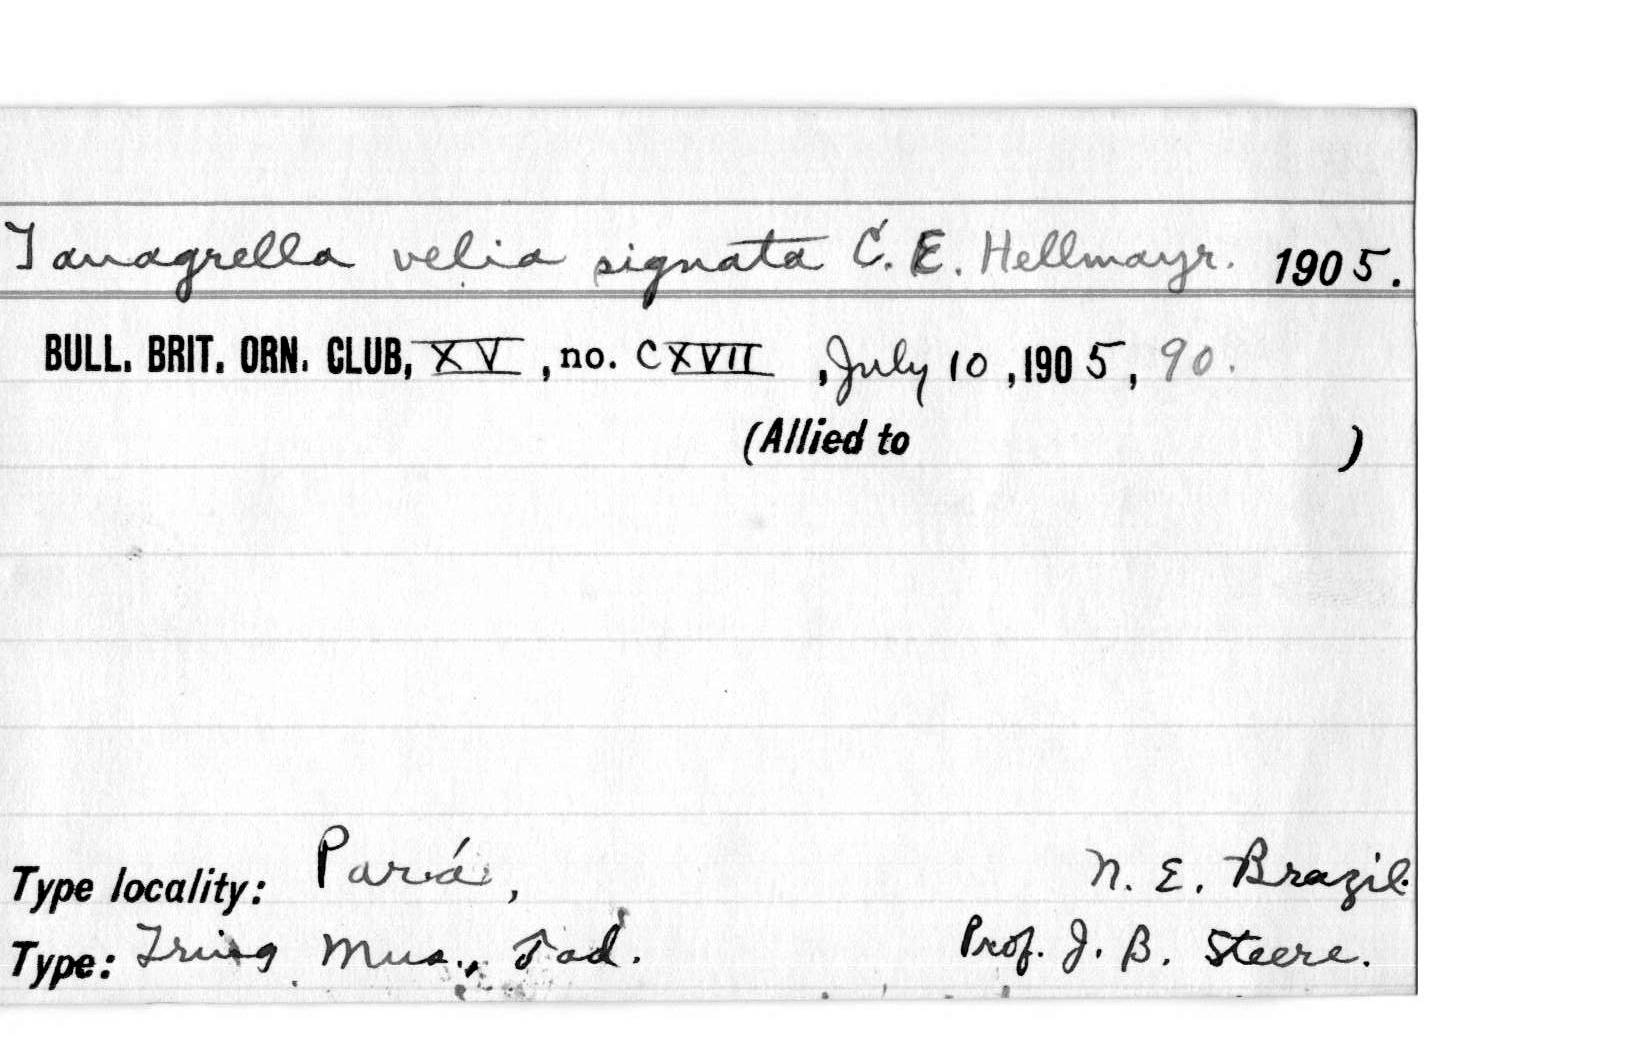 Tanagrella velia signata C. E. Hellmayr. 1905.
BULL. BRIT. ORN. CLUB, XV, no. CXVII, July 10, 1905, 90.
(Allied to )
Type locality: Pará, N. E. Brazil.
Type: Tring Mus., ad. Prof. J. B. Steere.